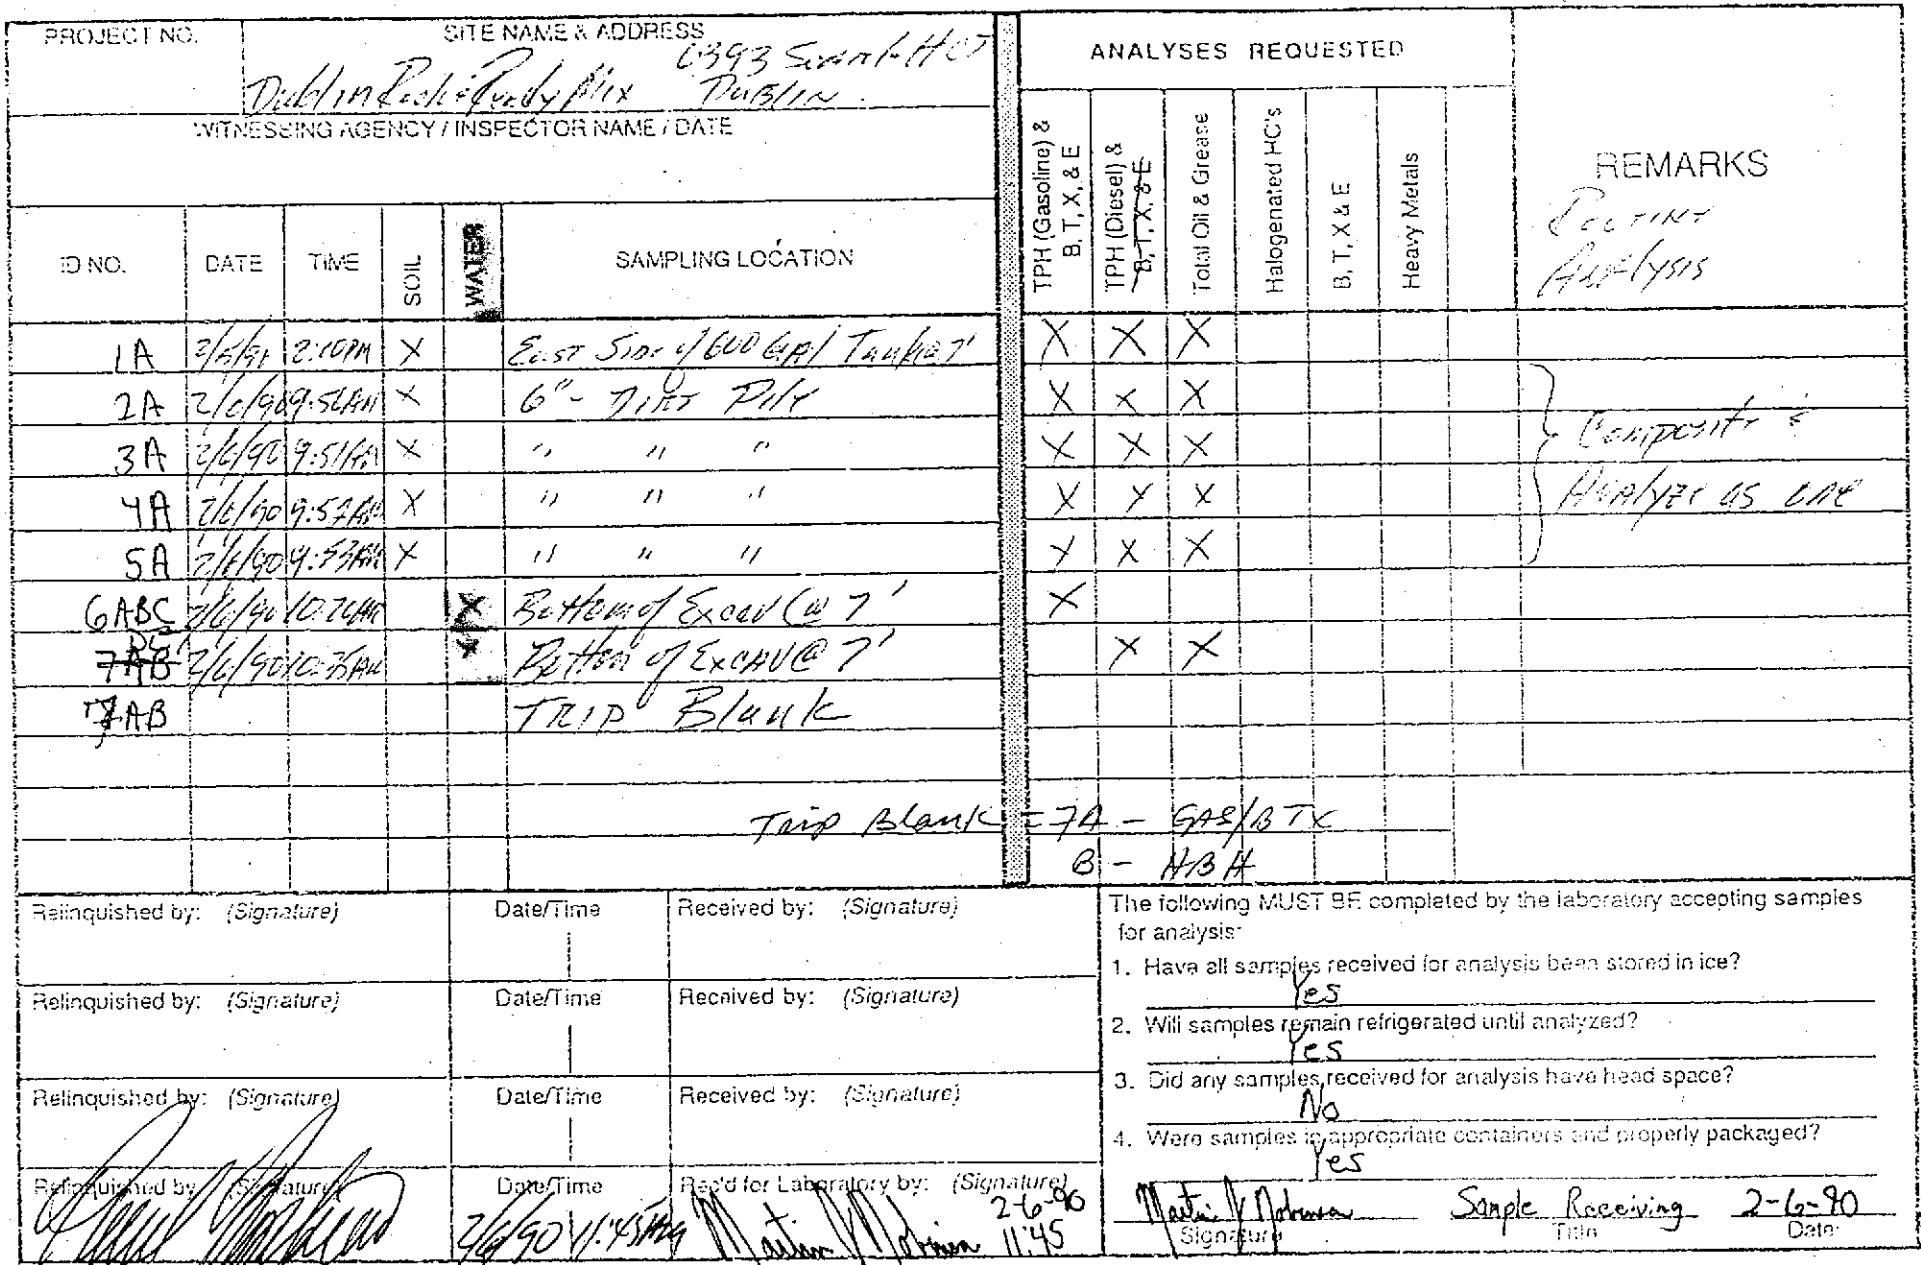 PROJECT NO.
SITE NAME & ADDRESS
6393 Scarlett CT
Dublin Rock & Ready Mix DUBLIN
WITNESSING AGENCY / INSPECTOR NAME / DATE
ANALYSES REQUESTED
ID NO. DATE TIME SOIL WATER SAMPLING LOCATION
TPH (Gasoline) & B, T, X, & E
TPH (Diesel) & B, T, X, & E
Total Oil & Grease
Halogenated HC's
B, T, X & E
Heavy Metals
REMARKS
ROUTINE
ANALYSIS
1A 2:10PM X East Side of 600 GAl Tank @ 7' X X X
2A 2/6/90 X 6" - Dirt Pile X X X
3A 2/6/90 9:51AM X " " " X X X
4A 2/6/90 9:52AM X " " " X X X
5A 2/6/90 9:53AM X " " " X X X
Composite &
Analyze as one
6ABC 2/6/90 X Bottom of Excav @ 7' X
DE
7AB 2/6/90 X Bottom of EXCAV @ 7' X X
7AB TRIP Blank
Trip Blank = 7A - GAS/BTX
B - HBH
Relinquished by: (Signature) Date/Time Received by: (Signature)
Relinquished by: (Signature) Date/Time Received by: (Signature)
Relinquished by: (Signature) Date/Time Received by: (Signature)
Relinquished by: (Signature) Date/Time Rec'd for Laboratory by: (Signature)
2/6/90 11:45AM 2-6-90
11:45
The following MUST BE completed by the laboratory accepting samples
for analysis:
1. Have all samples received for analysis been stored in ice?
Yes
2. Will samples remain refrigerated until analyzed?
Yes
3. Did any samples received for analysis have head space?
No
4. Were samples in appropriate containers and properly packaged?
Yes
Sample Receiving 2-6-90
Signature Title Date